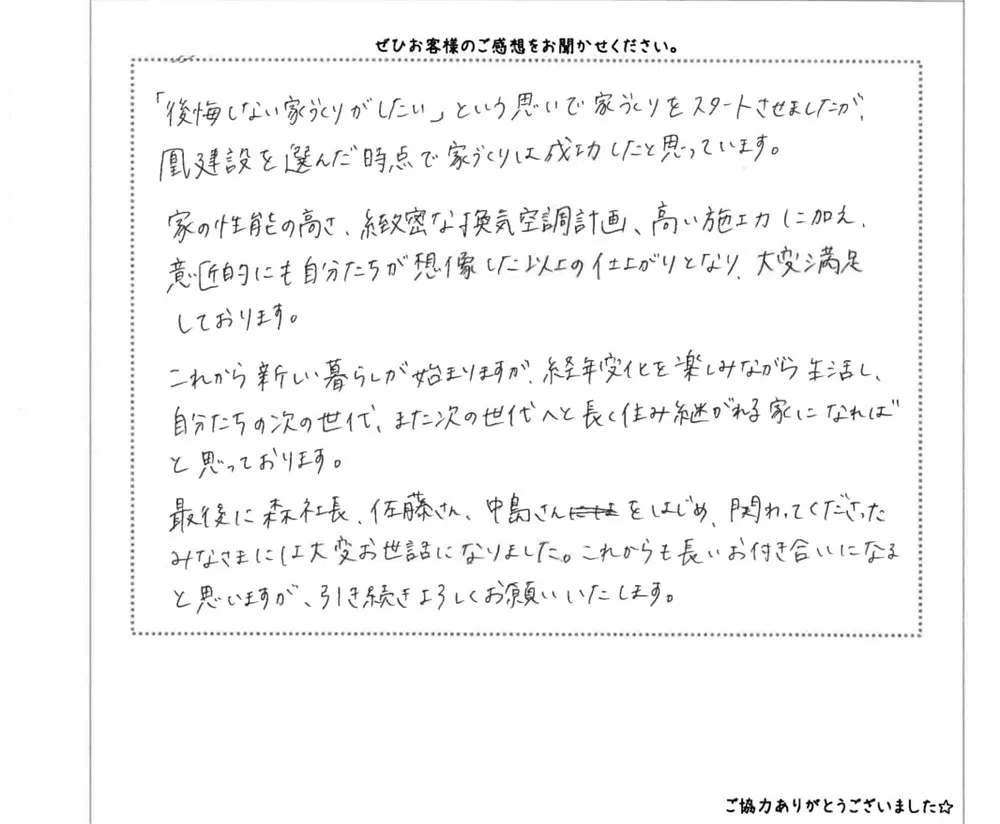 ぜひお客様のご感想をお聞かせください。
「後悔しない家づくりがしたい」という思いで家づくりをスタートさせましたが、
凰建設を選んだ時点で家づくりは成功したと思っています。
家の性能の高さ、緻密な換気空調計画、高い施工力に加え、
意匠的にも自分たちが想像した以上の仕上がりとなり、大変満足
しております。
これから新しい暮らしが始まりますが、経年変化を楽しみながら生活し、
自分たちの次の世代、また次の世代へと長く住み継がれる家になれば
と思っております。
最後に森社長、佐藤さん、中島さんをはじめ、関わってくださった
みなさまには大変お世話になりました。これからも長いお付き合いになる
と思いますが、引き続きよろしくお願いいたします。
ご協力ありがとうございました☆